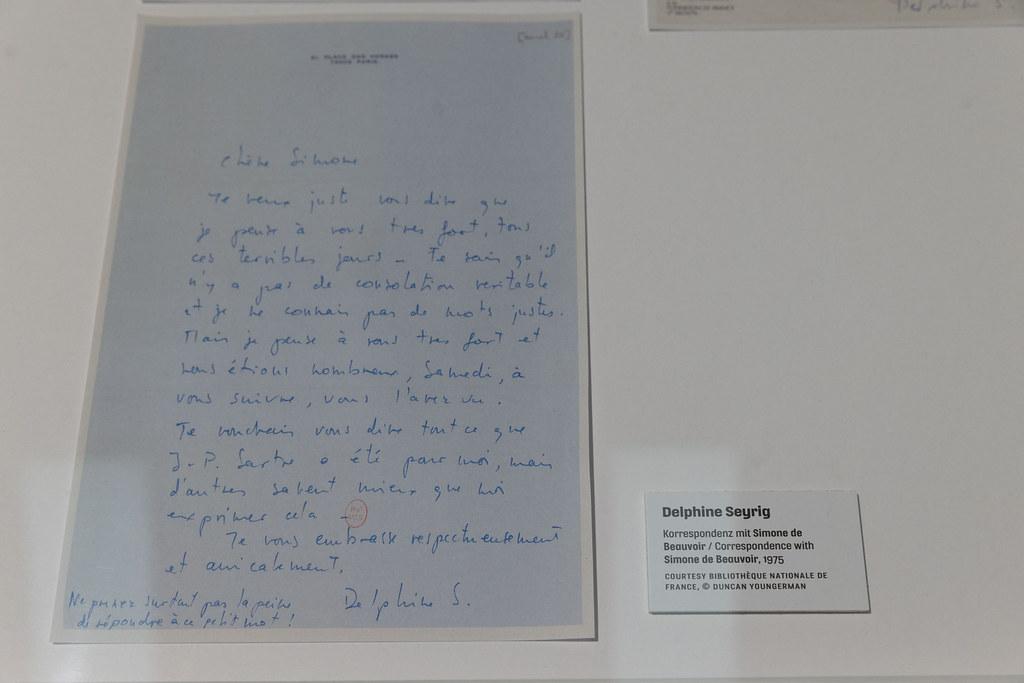 21 PLACE DES VOSGES
75003 PARIS
Chère Simone
Je veux juste vous dire que
je pense à vous tres fort, tous
ces terribles jours – Je sais qu'il
n'y a pas de consolation veritable
et je ne connais pas de mots justes.
Mais je pense à vous tres fort et
nous étions nombreux, Samedi, à
vous suivre, vous l'avez vu.
Je voudrais vous dire tout ce que
J.-P. Sartre a été pour moi, mais
d'autres savent mieux que moi
exprimer cela –
Je vous embrasse respectueusement
et amicalement.
Delphine S.
Ne prenez surtout pas la peine
de répondre à ce petit mot !
Delphine S.
Delphine Seyrig
Korrespondenz mit Simone de
Beauvoir / Correspondence with
Simone de Beauvoir, 1975
COURTESY BIBLIOTHÈQUE NATIONALE DE
FRANCE, © DUNCAN YOUNGERMAN